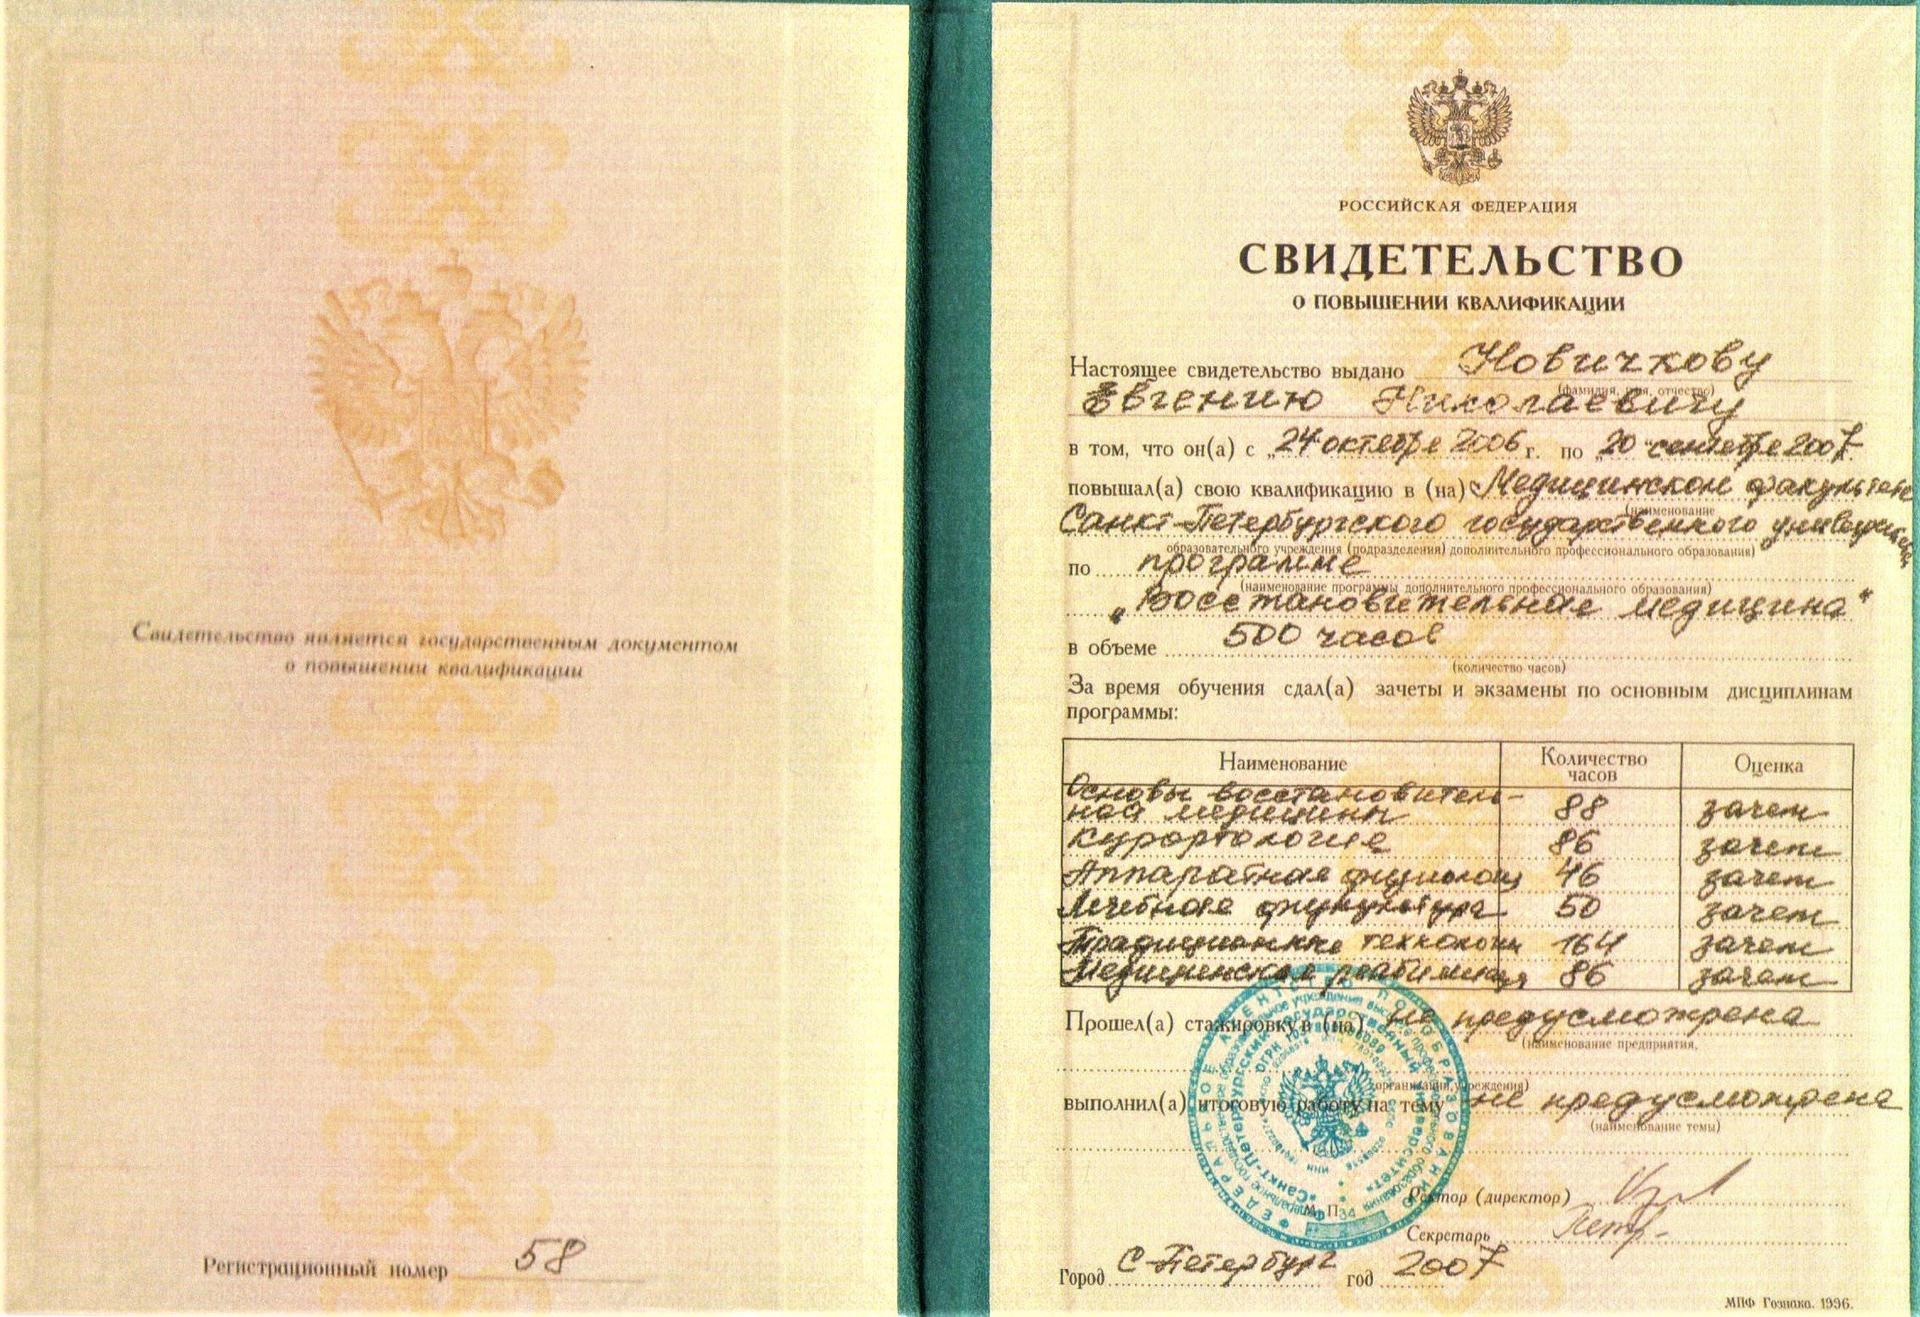 Свидетельство является государственным документом
о повышении квалификации
Регистрационный номер 58
РОССИЙСКАЯ ФЕДЕРАЦИЯ
СВИДЕТЕЛЬСТВО
О ПОВЫШЕНИИ КВАЛИФИКАЦИИ
Настоящее свидетельство выдано Новичкову
(фамилия, имя, отчество)
Евгению Николаевичу
в том, что он(а) с „24 октября 2006 г. по „20 сентября 2007
повышал(а) свою квалификацию в (на) Медицинском факультете
(наименование
Санкт-Петербургского государственного университета
образовательного учреждения (подразделения) дополнительного профессионального образования)
по программе
(наименование программы дополнительного профессионального образования)
„Восстановительная медицина"
в объеме 500 часов
(количество часов)
За время обучения сдал(а) зачеты и экзамены по основным дисциплинам
программы:
Наименование Количество часов Оценка
Основы восстановитель-
ной медицины 88 зачет
Курортология 86 зачет
Аппаратная физиолог 46 зачет
Лечебная физкультура 50 зачет
Традиционные технологии 164 зачет
Медицинская 86 зачет
Прошел(а) стажировку в (на) не предусмотрена
(наименование предприятия,
организации, учреждения)
выполнил(а) итоговую работу на тему не предусмотрена
(наименование темы)
ФЕДЕРАЛЬНОЕ АГЕНТСТВО ПО ОБРАЗОВАНИЮ
«Санкт-Петербургский государственный университет»
М. П.
34
Ректор (директор)
Секретарь Петр.
Город С-Петербург год 2007
МПФ Гознака. 1996.